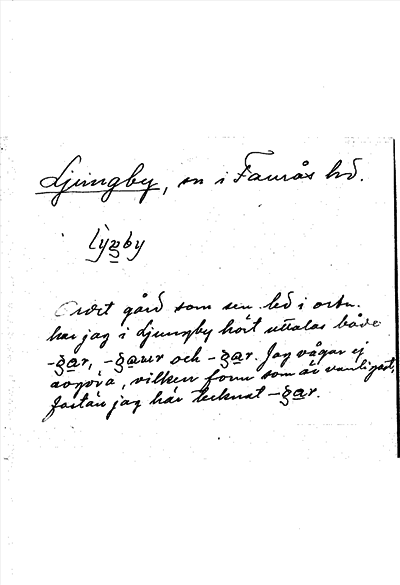 Ljungby, sn i Faurås hd.
Lyngby
Ordet gård som sen. led i ortn.
har jag i Ljungby hört uttalas både
-gar, -gaur och -gar. Jag vågar ej
avgöra, vilken form som är vanligast,
fastän jag här tecknat -gar.